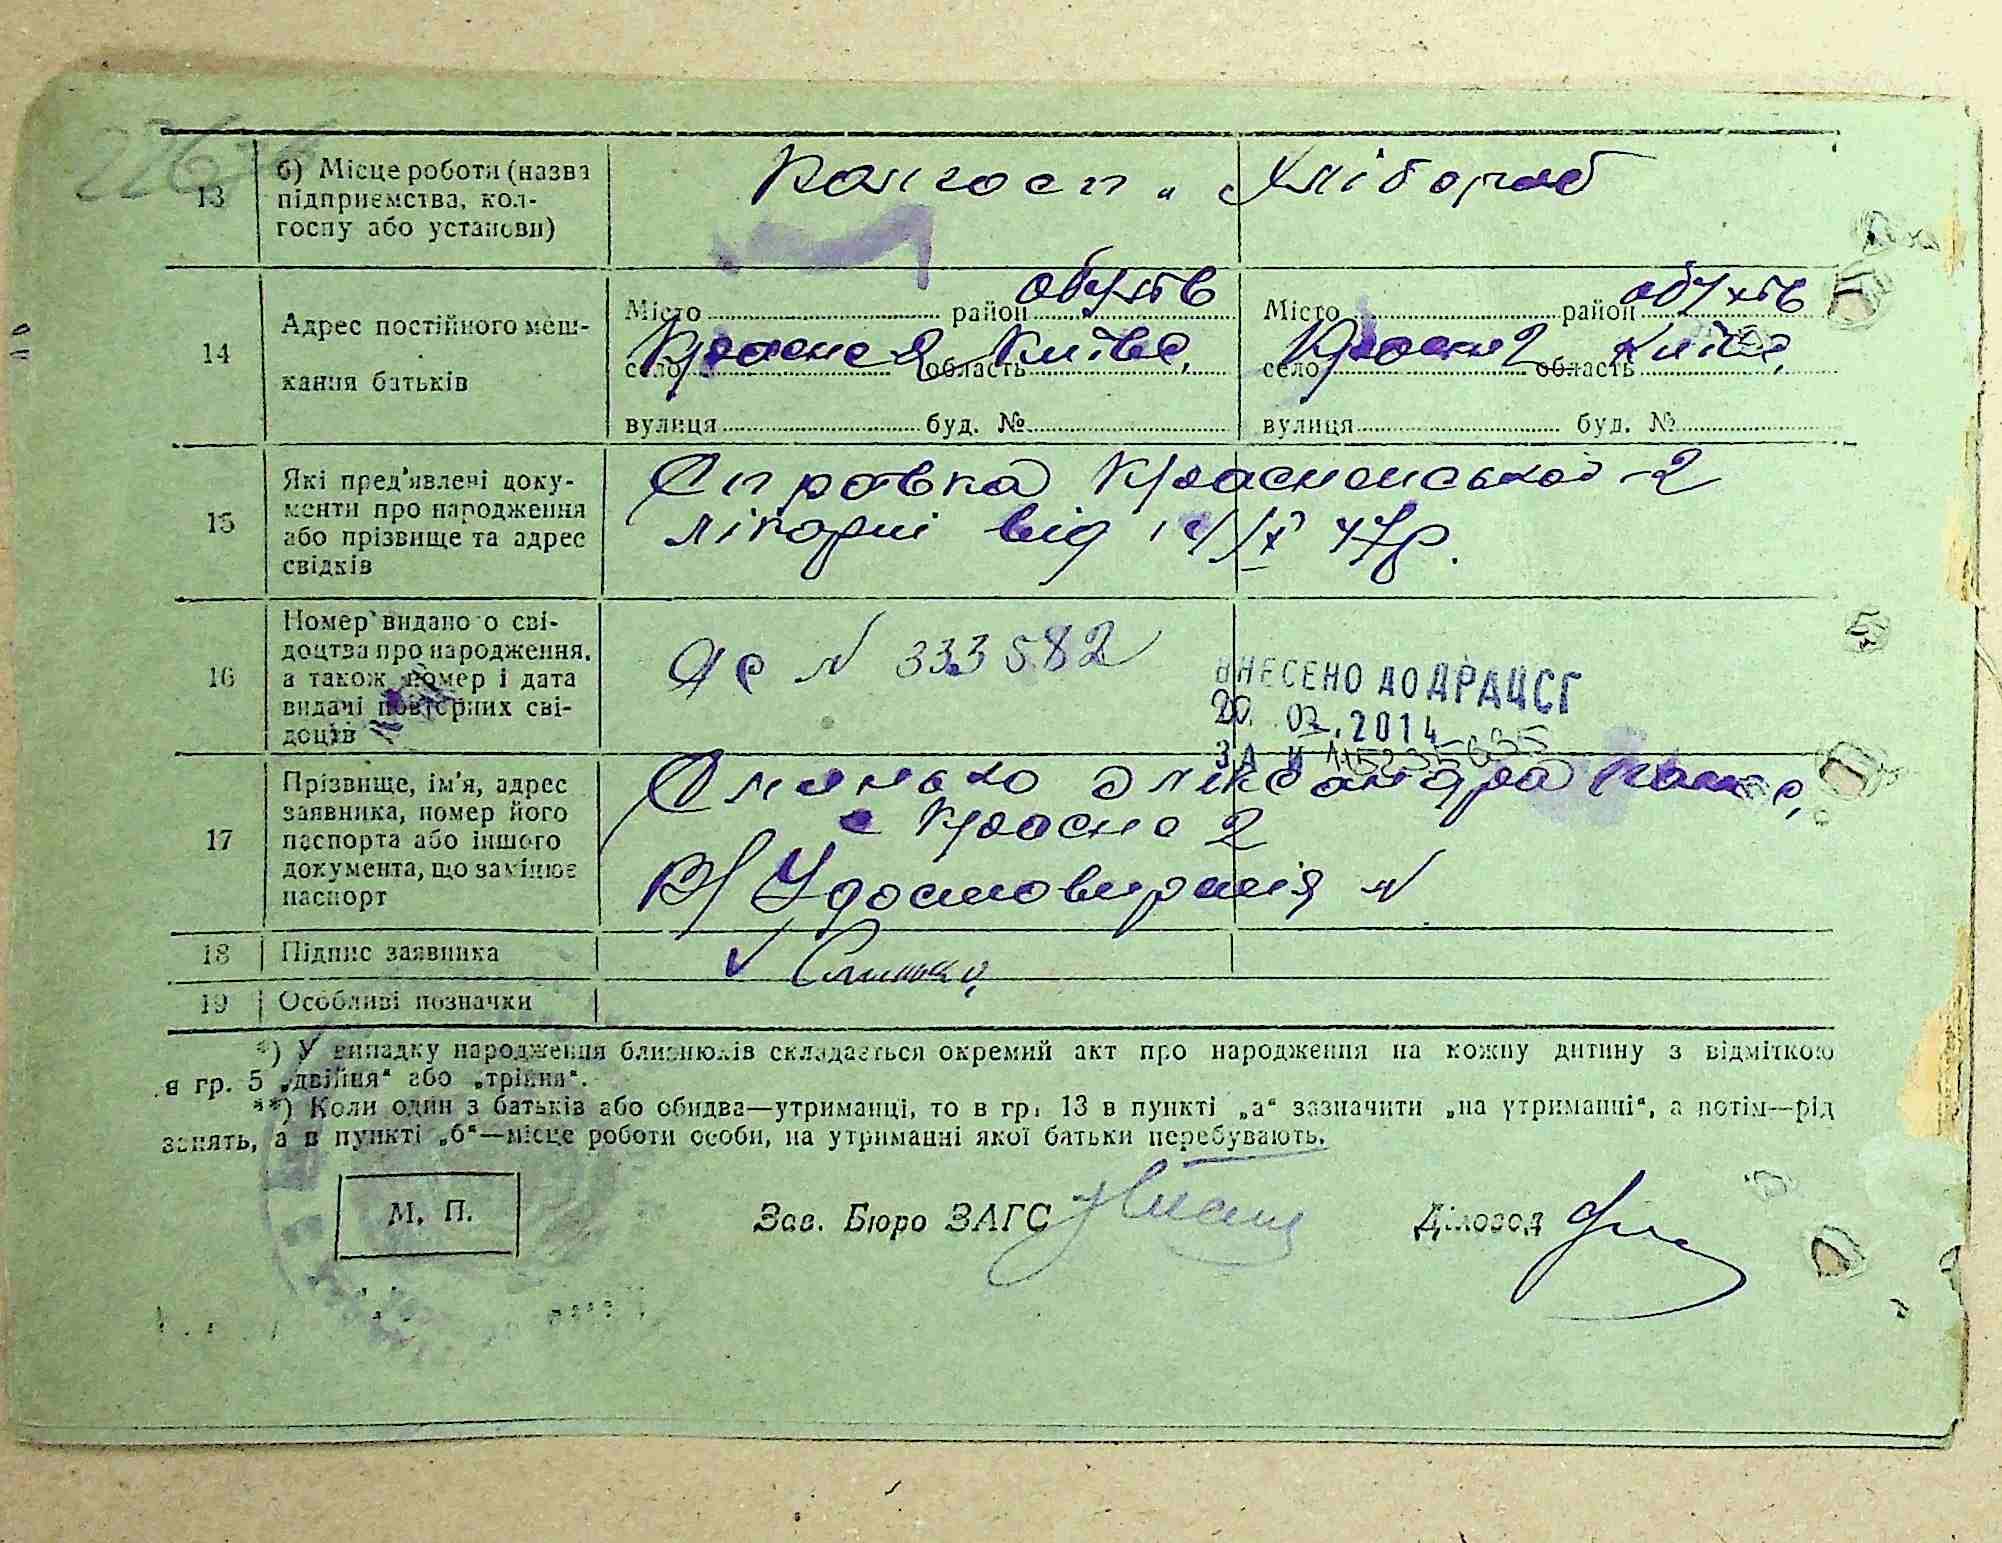 226
13
б) Місце роботи (назва
підприємства, кол-
госпу або установи)
Колгосп „ Хлібороб
14
Адрес постійного меш-
кання батьків
Місто район Обухів
село Красна 2 область Київс,
вулиця буд. №
Місто район Обухів
село Красна 2 область Київс,
вулиця буд. №
15
Які пред'явлені доку-
менти про народження
або прізвище та адрес
свідків
Справка Красненської -2
лікарні від 14/ІХ 47р.
16
Номер видано о сві-
доцтва про народження,
а також номер і дата
видачі повторних сві-
доцтв
ЯС N 333582
ВНЕСЕНО ДО ДРАЦСГ
20. 02. 2014
ЗА N
17
Прізвище, ім'я, адрес
заявника, номер його
паспорта або іншого
документа, що замінює
паспорт
Олександра
с Красне 2
Удостовирения N
18
Підпис заявника
19
Особливі позначки
*) У випадку народження близнюків складається окремий акт про народження на кожну дитину з відміткою
в гр. 5 „двійня“ або „трійня“.
**) Коли один з батьків або обидва—утриманці, то в гр. 13 в пункті „а“ зазначити „на утриманні“, а потім—рід
занять, а в пункті „б“—місце роботи особи, на утриманні якої батьки перебувають.
М. П.
Зав. Бюро ЗАГС
Діловод